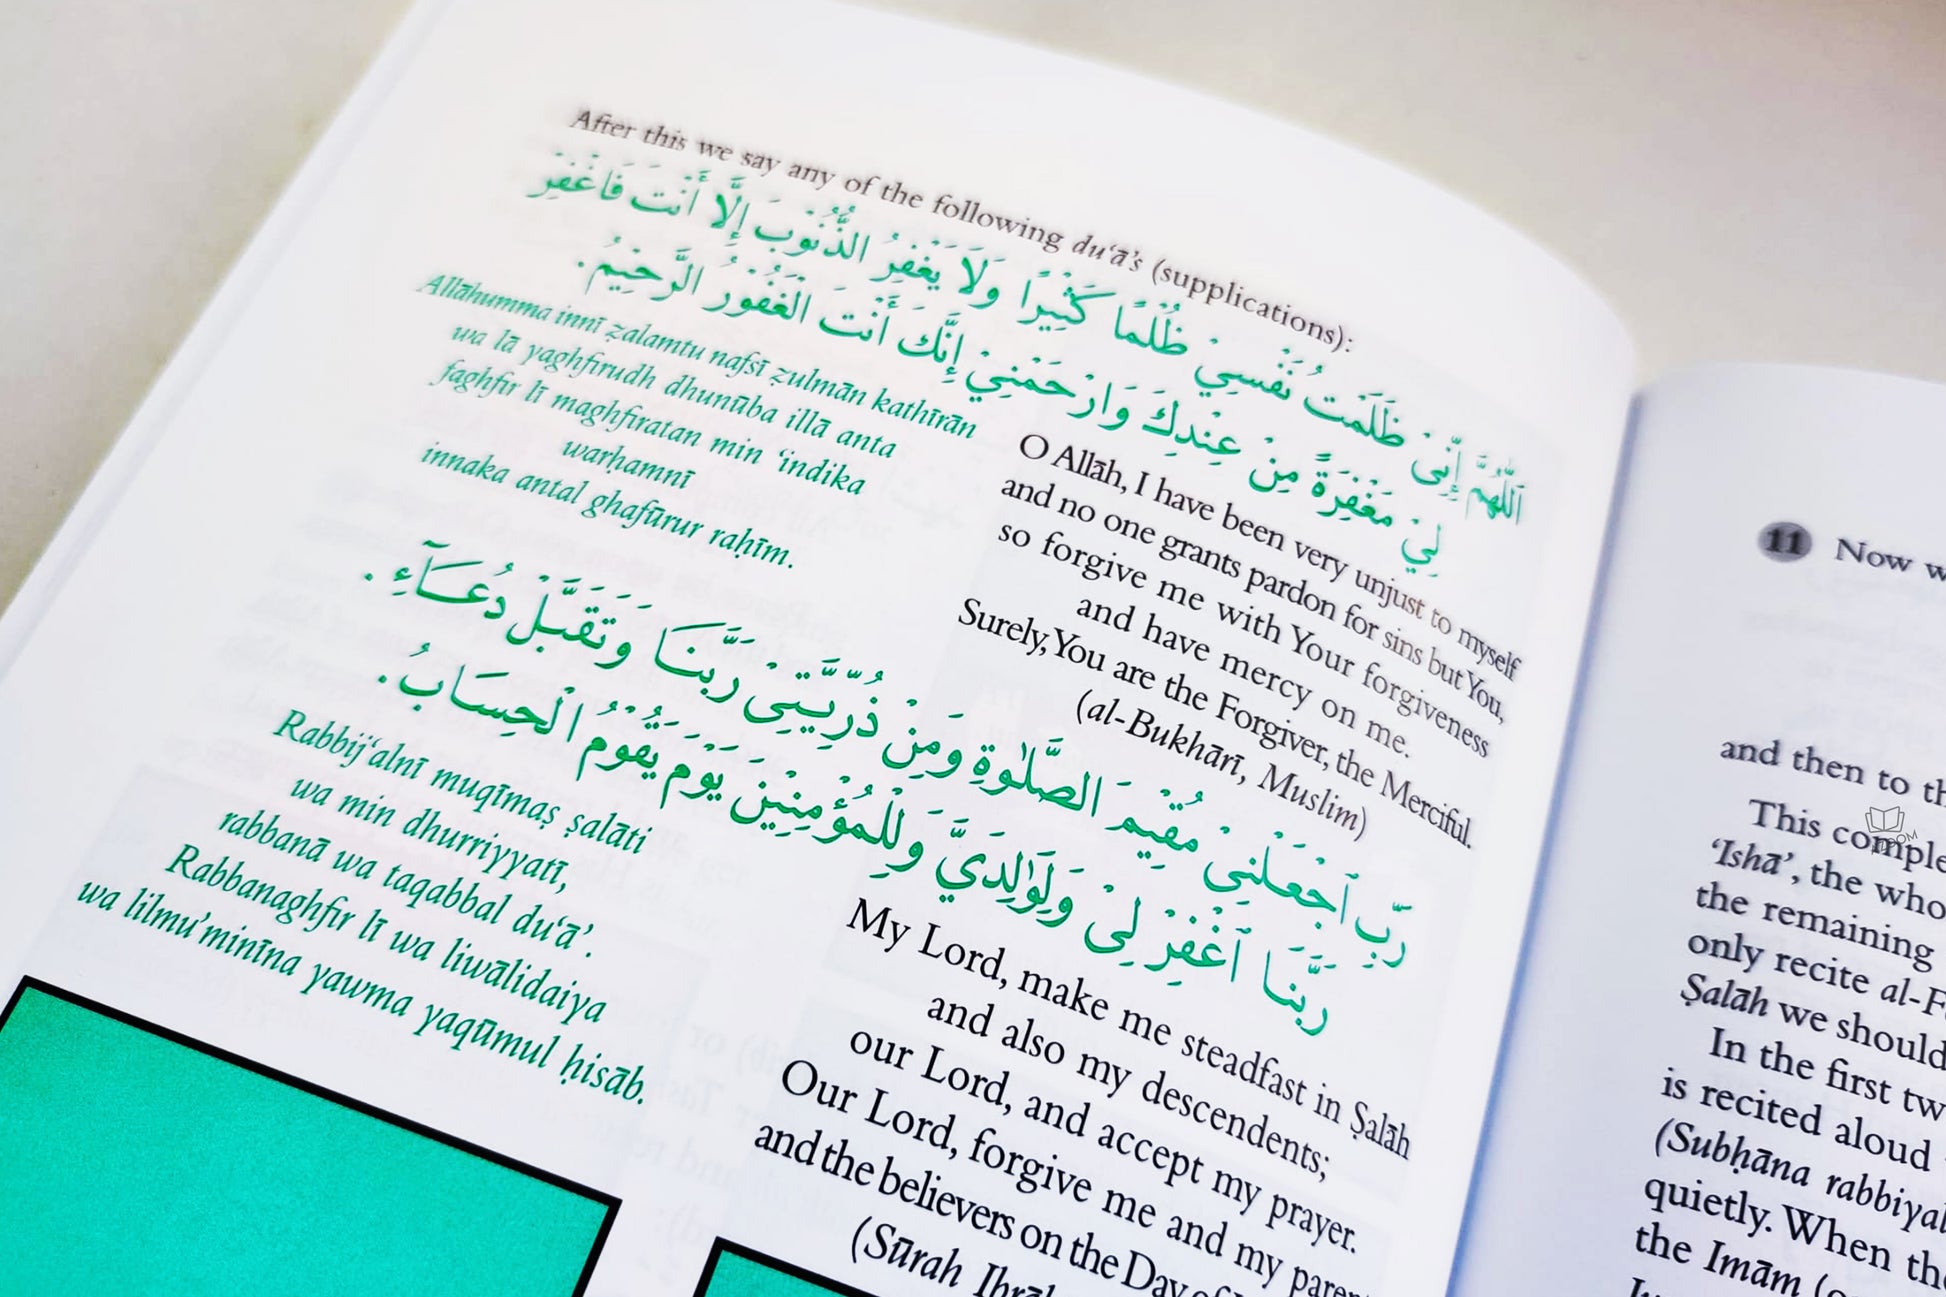 After this we say any of the following du‘ā’s (supplications):
اَللّٰهُمَّ إِنِّىْ ظَلَمْتُ نَفْسِيْ ظُلْمًا كَثِيْرًا وَلَا يَغْفِرُ الذُّنُوْبَ إِلَّا أَنْتَ فَاغْفِرْ
لِيْ مَغْفِرَةً مِنْ عِنْدِكَ وَارْحَمْنِيْ إِنَّكَ أَنْتَ الْغَفُوْرُ الرَّحِيْمُ.
Allāhumma innī ẓalamtu nafsī ẓulmān kathīrān
wa lā yaghfirudh dhunūba illā anta
faghfir lī maghfiratan min ‘indika
warḥamnī
innaka antal ghafūrur raḥīm.
O Allāh, I have been very unjust to myself
and no one grants pardon for sins but You,
so forgive me with Your forgiveness
and have mercy on me.
Surely, You are the Forgiver, the Merciful.
(al-Bukhārī, Muslim)
رَبِّ ٱجْعَلْنِيْ مُقِيْمَ الصَّلٰوةِ وَمِنْ ذُرِّيَّتِىْ رَبَّنَا وَتَقَبَّلْ دُعَآءِ.
رَبَّنَا ٱغْفِرْ لِىْ وَلِوَٰلِدَيَّ وَلِلْمُؤْمِنِيْنَ يَوْمَ يَقُوْمُ الْحِسَابُ.
Rabbij‘alnī muqīmaṣ ṣalāti
wa min dhurriyyatī,
rabbanā wa taqabbal du‘ā’.
Rabbanaghfir lī wa liwālidaiya
wa lilmu’minīna yawma yaqūmul ḥisāb.
My Lord, make me steadfast in Ṣalāh
and also my descendents;
our Lord, and accept my prayer.
Our Lord, forgive me and my
and the believers on the Day of
(Sūrah
11 Now
and then to
This
‘Ishā’, the
the remaining
only recite
Ṣalāh we should
In the first
is recited aloud
(Subḥāna
quietly. When
the Imām